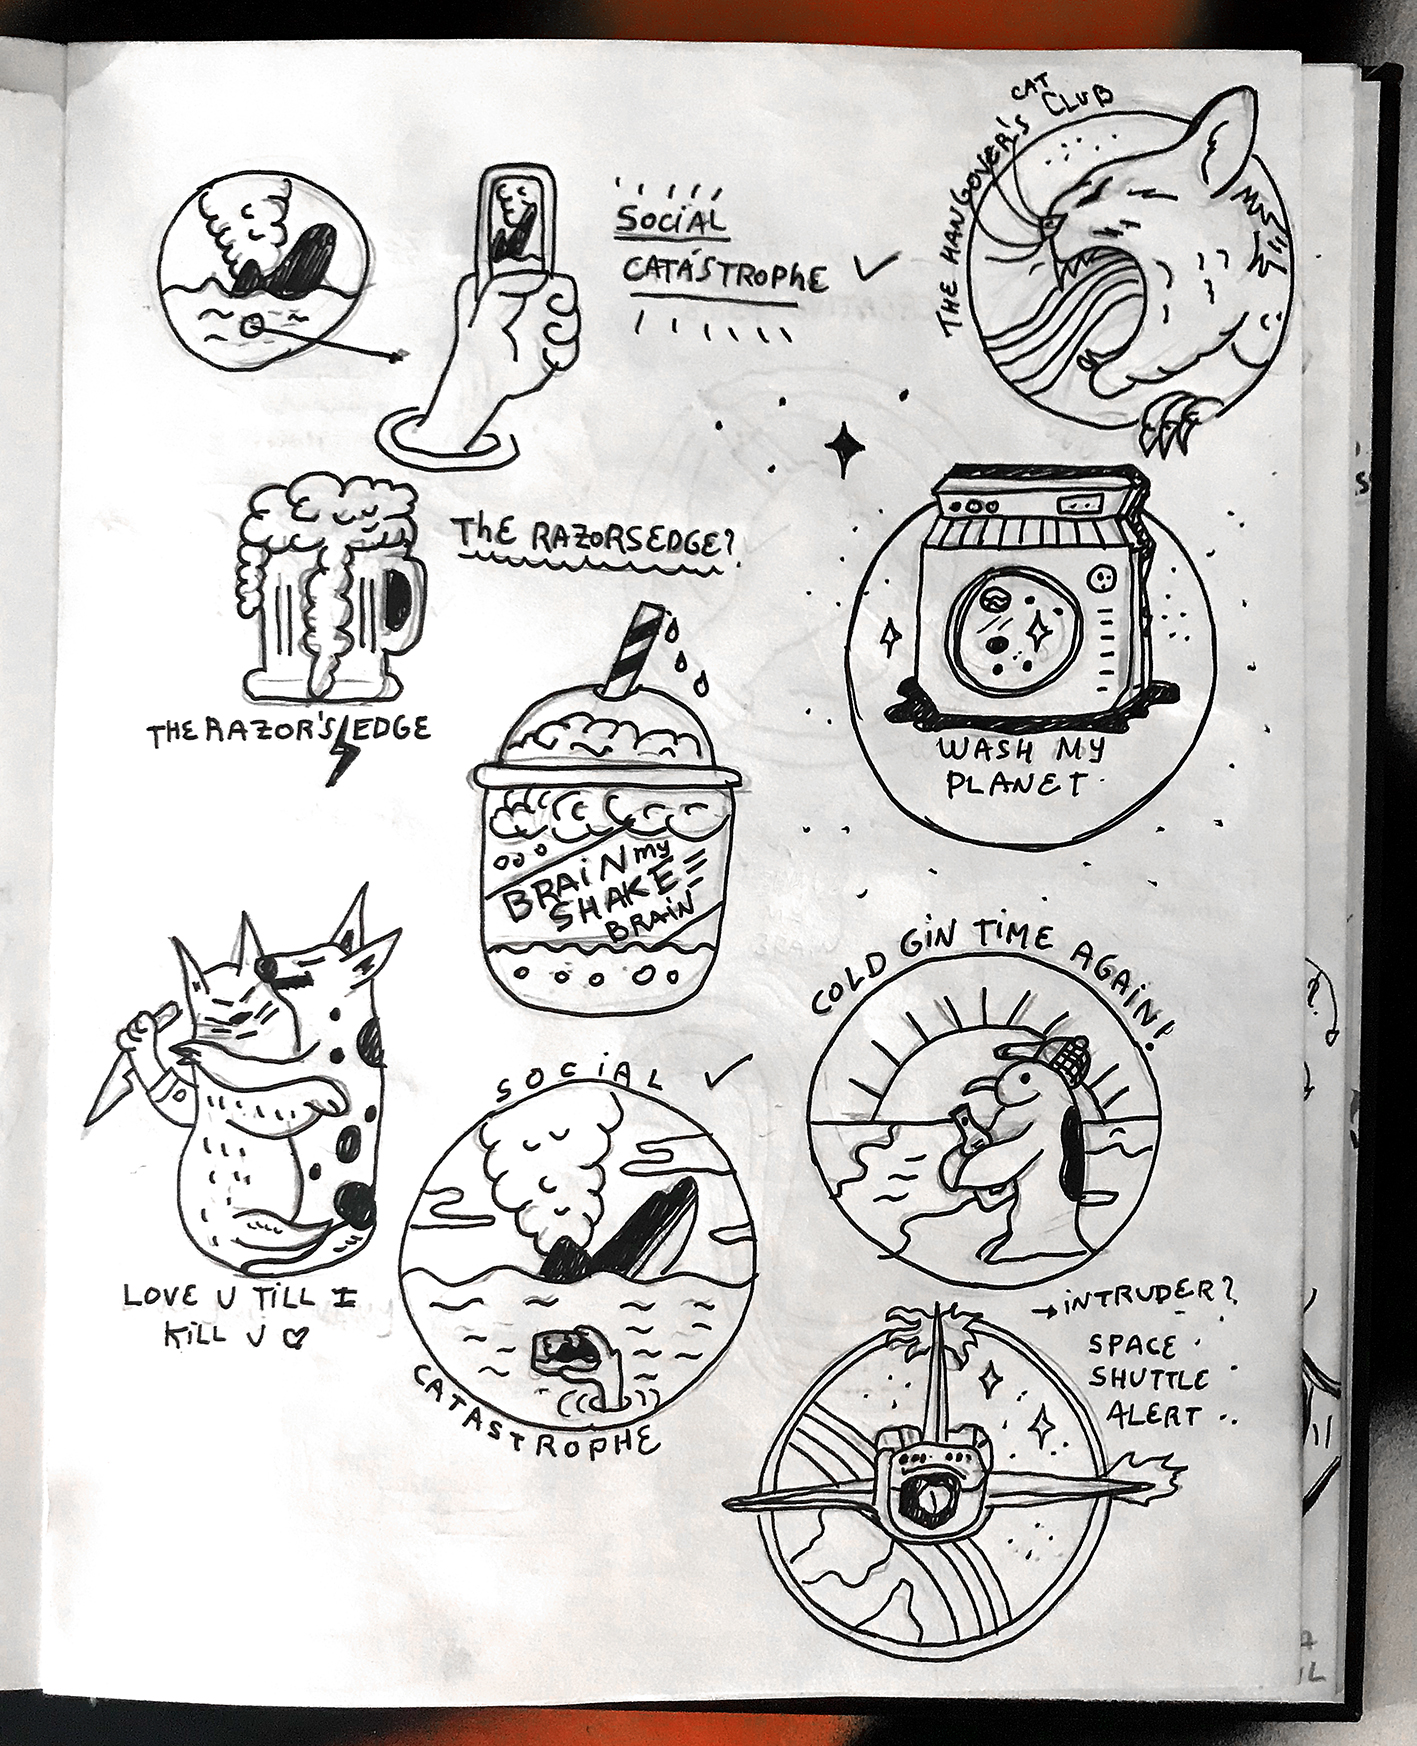 THE HANGOVER'S CAT CLUB
SOCIAL
CATASTROPHE
THE RAZORSEDGE?
THE RAZOR'S EDGE
WASH MY
PLANET
BRAIN my
SHAKE
BRAIN
COLD GIN TIME AGAIN!
LOVE U TILL I
KILL U
SOCIAL
CATASTROPHE
INTRUDER?
SPACE
SHUTTLE
ALERT ..